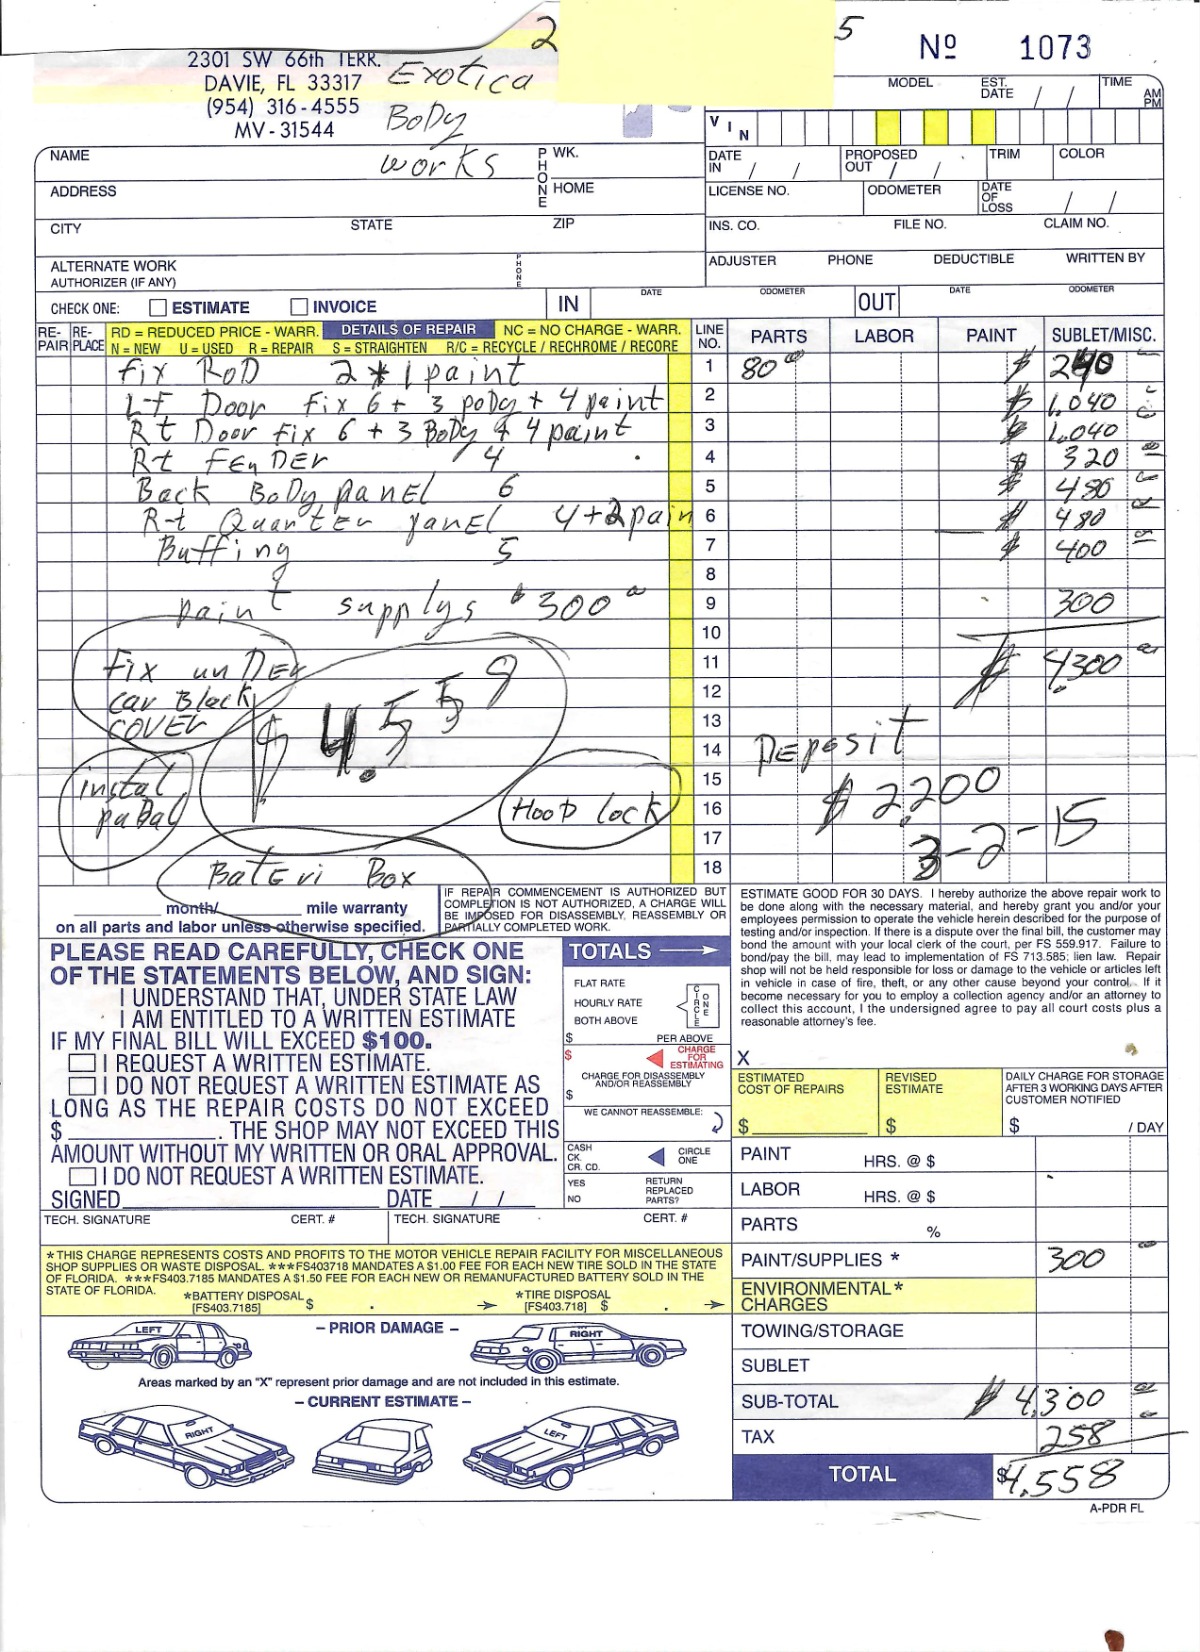 2 5
Nº 1073
2301 SW 66th TERR.
DAVIE, FL 33317
(954) 316-4555
MV-31544
Exotica
BoDy
works
MODEL EST. DATE / / TIME AM PM
VIN
NAME PHONE WK. DATE IN / / PROPOSED OUT / / TRIM COLOR
ADDRESS HOME LICENSE NO. ODOMETER DATE OF LOSS / /
CITY STATE ZIP INS. CO. FILE NO. CLAIM NO.
ALTERNATE WORK AUTHORIZER (IF ANY) PHONE ADJUSTER PHONE DEDUCTIBLE WRITTEN BY
CHECK ONE: ESTIMATE INVOICE IN DATE ODOMETER OUT DATE ODOMETER
RE-PAIR RE-PLACE RD = REDUCED PRICE - WARR. DETAILS OF REPAIR NC = NO CHARGE - WARR. LINE NO. PARTS LABOR PAINT SUBLET/MISC.
N = NEW U = USED R = REPAIR S = STRAIGHTEN R/C = RECYCLE / RECHROME / RECORE
fix RoD 2 * 1 paint 1 80 00 $ 240
Lf Door fix 6 + 3 poDy + 4 paint 2 $ 1,040
Rt Door fix 6 + 3 BoDy + 4 paint 3 $ 1,040
Rt FEnDEr 4 4 $ 320
Back BoDy panEl 6 5 $ 480
R-t QuartEr panEl 4+2 pain 6 $ 480
Buffing 5 7 $ 400
8
paint supplys $ 300 9 300
10
fix unDEr 11 $ 4,300
car Block 12
COVEr $ 4,559 13
14 DEposit
instal 15 $ 2,200
paDal Hood lock 16
17 3-2-15
BatEri Box 18
month/ mile warranty
on all parts and labor unless otherwise specified.
IF REPAIR COMMENCEMENT IS AUTHORIZED BUT
COMPLETION IS NOT AUTHORIZED, A CHARGE WILL
BE IMPOSED FOR DISASSEMBLY, REASSEMBLY OR
PARTIALLY COMPLETED WORK.
ESTIMATE GOOD FOR 30 DAYS. I hereby authorize the above repair work to
be done along with the necessary material, and hereby grant you and/or your
employees permission to operate the vehicle herein described for the purpose of
testing and/or inspection. If there is a dispute over the final bill, the customer may
bond the amount with your local clerk of the court, per FS 559.917. Failure to
bond/pay the bill, may lead to implementation of FS 713.585; lien law. Repair
shop will not be held responsible for loss or damage to the vehicle or articles left
in vehicle in case of fire, theft, or any other cause beyond your control. If it
become necessary for you to employ a collection agency and/or an attorney to
collect this account, I the undersigned agree to pay all court costs plus a
reasonable attorney's fee.
X
PLEASE READ CAREFULLY, CHECK ONE
OF THE STATEMENTS BELOW, AND SIGN:
I UNDERSTAND THAT, UNDER STATE LAW
I AM ENTITLED TO A WRITTEN ESTIMATE
IF MY FINAL BILL WILL EXCEED $100.
I REQUEST A WRITTEN ESTIMATE.
I DO NOT REQUEST A WRITTEN ESTIMATE AS
LONG AS THE REPAIR COSTS DO NOT EXCEED
$ . THE SHOP MAY NOT EXCEED THIS
AMOUNT WITHOUT MY WRITTEN OR ORAL APPROVAL.
I DO NOT REQUEST A WRITTEN ESTIMATE.
SIGNED DATE / /
TECH. SIGNATURE CERT. # TECH. SIGNATURE CERT. #
TOTALS
FLAT RATE
HOURLY RATE
BOTH ABOVE
CIRCLE ONE
$ PER ABOVE
$ CHARGE FOR ESTIMATING
CHARGE FOR DISASSEMBLY
AND/OR REASSEMBLY
$
WE CANNOT REASSEMBLE:
CASH
CK.
CR. CD.
CIRCLE ONE
YES
NO
RETURN REPLACED PARTS?
ESTIMATED COST OF REPAIRS $
REVISED ESTIMATE $
DAILY CHARGE FOR STORAGE
AFTER 3 WORKING DAYS AFTER
CUSTOMER NOTIFIED
$ / DAY
PAINT HRS. @ $
LABOR HRS. @ $
PARTS %
PAINT/SUPPLIES * 300
ENVIRONMENTAL * CHARGES
TOWING/STORAGE
SUBLET
SUB-TOTAL $ 4,300
TAX 258
TOTAL $4,558
*THIS CHARGE REPRESENTS COSTS AND PROFITS TO THE MOTOR VEHICLE REPAIR FACILITY FOR MISCELLANEOUS
SHOP SUPPLIES OR WASTE DISPOSAL. ***FS403718 MANDATES A $1.00 FEE FOR EACH NEW TIRE SOLD IN THE STATE
OF FLORIDA. ***FS403.7185 MANDATES A $1.50 FEE FOR EACH NEW OR REMANUFACTURED BATTERY SOLD IN THE
STATE OF FLORIDA.
*BATTERY DISPOSAL [FS403.7185] $ .
*TIRE DISPOSAL [FS403.718] $ .
LEFT – PRIOR DAMAGE – RIGHT
Areas marked by an "X" represent prior damage and are not included in this estimate.
– CURRENT ESTIMATE –
RIGHT LEFT
A-PDR FL